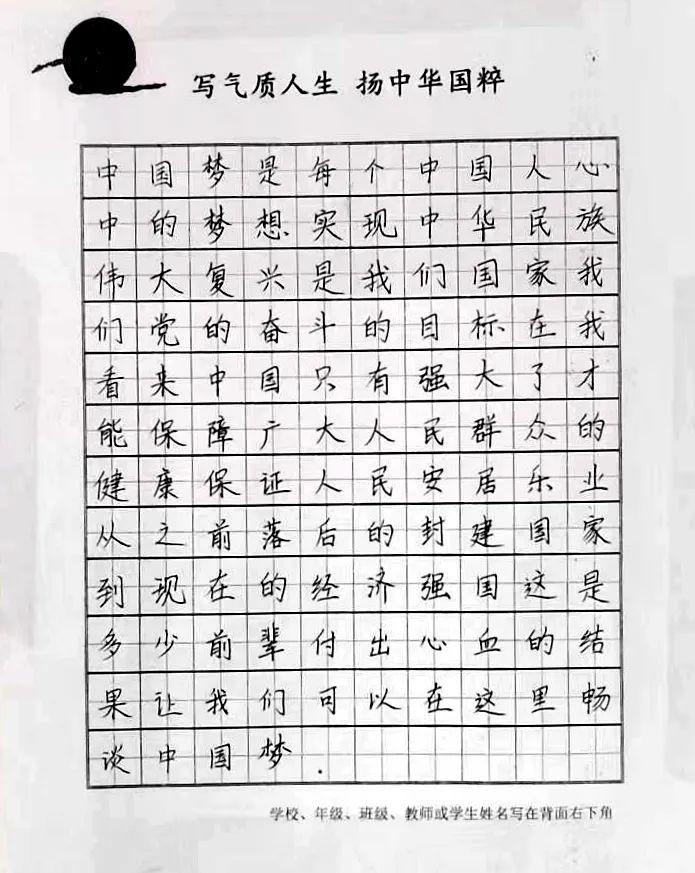 写气质人生 扬中华国粹
中国梦是每个中国人心
中的梦想实现中华民族
伟大复兴是我们国家我
们党的奋斗的目标在我
看来中国只有强大了才
能保障广大人民群众的
健康保证人民安居乐业
从之前落后的封建国家
到现在的经济强国这是
多少前辈付出心血的结
果让我们可以在这里畅
谈中国梦.
学校、年级、班级、教师或学生姓名写在背面右下角